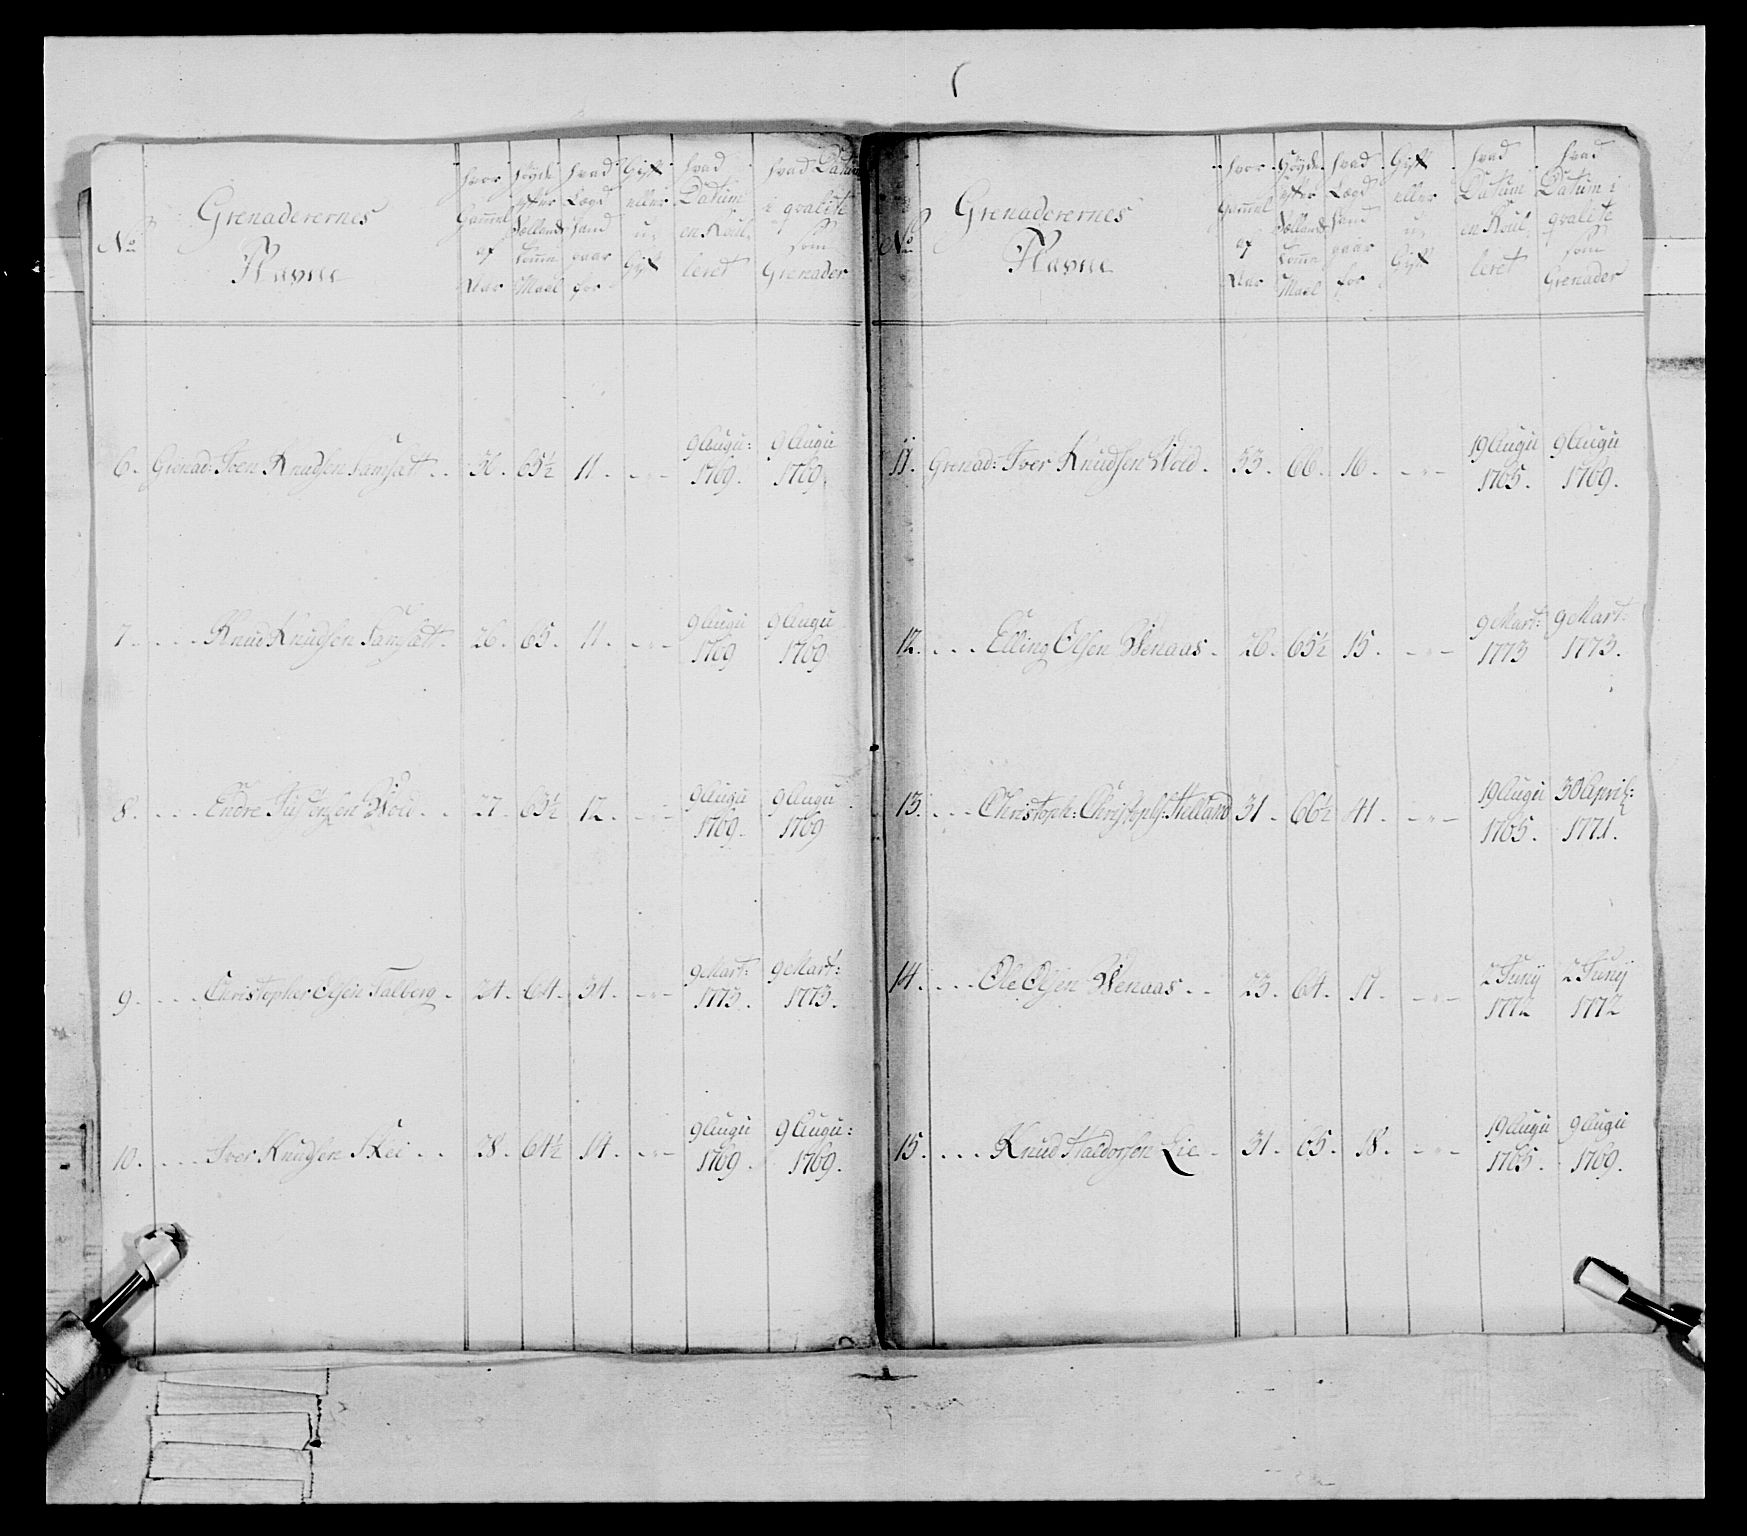 No
Grenaderernes
Navne
hvor Gammel af Aar
Høyde efter Sællands Tomme Maal
hvad Lægd hand gaar for
Gift eller u, Gift
hvad Datum en Roul, leret
hvad Datum i qvalite som Grenader
6. Grenad: Iven Knudsen Samsætt . . 30. 65½ 11. - " - 9 Augu: 1769. 9 Augu 1769.
7. . . . Knud Knudsen Samsætt. 26. 65. 11. - " - 9 Augu 1769 9 Augu 1769
8. . . . Endre Woid . . 27. 65½ 12. - " - 9 Augu 1769. 9 Augu 1769
9. . . . Christopher Olsen Talberg . 24. 64. 34. - " - 9 Mart: 1773. 9 Mart: 1773.
10. . . . Iver Knudsen Skei . . 28. 64½ 14. - " - 9 Augu 1769. 9 Augu: 1769.
No
Grenaderernes
Navne
hvor Gammel af Aar
Høyde efter Sællands Tomme Maal
hvad Lægd hand gaar for
Gift eller u, Gift
hvad Datum en Roul, leret
hvad Datum i qvalite som Grenader
11. Grenad: Iver Knudsen Woid. 33. 66. 16. - " - 19 Augu 1765. 9 Augu 1769.
12. . . . Elling Olsen Wenaas. 26. 65½ 15. - " - 9 Mart: 1773 9 Mart: 1773.
13. . . . Christoph: Christophs: Hilland 31. 66½ 41. - " - 19 Augu 1765. 30 April: 1771.
14. . . . Ole Olsen Wenaas . . 23. 64. 17. - " - 2 Junij 1772 2 Junij 1772
15. . . . Knud Haldorsen Lie . 31. 65. 18. - " - 19 Augu 1765. 9 Augu 1769.